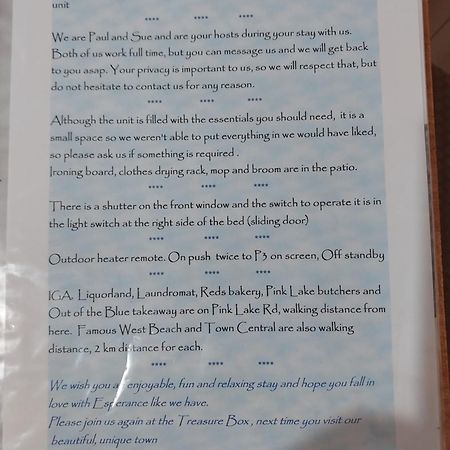 unit
**** **** ****
We are Paul and Sue and are your hosts during your stay with us.
Both of us work full time, but you can message us and we will get back
to you asap. Your privacy is important to us, so we will respect that, but
do not hesitate to contact us for any reason.
**** **** ****
Although the unit is filled with the essentials you should need, it is a
small space so we weren't able to put everything in we would have liked,
so please ask us if something is required .
Ironing board, clothes drying rack, mop and broom are in the patio.
**** **** ****
There is a shutter on the front window and the switch to operate it is in
the light switch at the right side of the bed (sliding door)
**** **** ****
Outdoor heater remote. On push twice to P3 on screen, Off standby
**** **** ****
IGA. Liquorland, Laundromat, Reds bakery, Pink Lake butchers and
Out of the Blue takeaway are on Pink Lake Rd, walking distance from
here. Famous West Beach and Town Central are also walking
distance, 2 km distance for each.
**** **** ****
We wish you an enjoyable, fun and relaxing stay and hope you fall in
love with Esperance like we have.
Please join us again at the Treasure Box , next time you visit our
beautiful, unique town